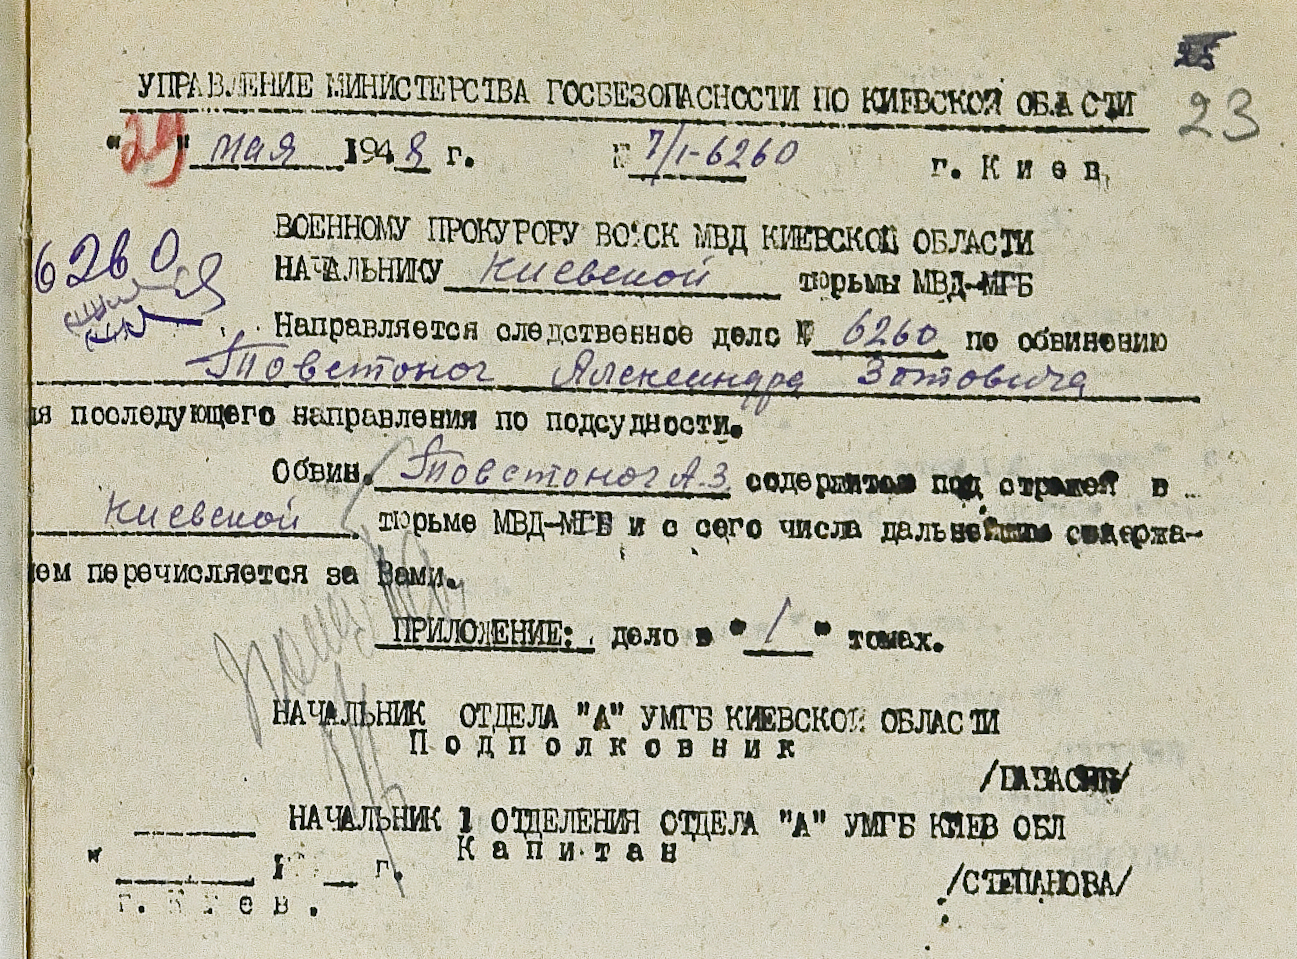 23
УПРАВЛЕНИЕ МИНИСТЕРСТВА ГОСБЕЗОПАСНОСТИ ПО КИЕВСКОЙ ОБЛАСТИ
"29" мая 1948 г. № 7/1-6260 г. Киев
ВОЕННОМУ ПРОКУРОРУ ВОЙСК МВД КИЕВСКОЙ ОБЛАСТИ
6260
НАЧАЛЬНИКУ Киевской тюрьмы МВД-МГБ
Направляется следственное дело № 6260 по обвинению
Товстоног Александра Зотовича
ля последующего направления по подсудности.
Обвин. Товстоног А.З. содержится под стражей в
Киевской тюрьме МВД-МГБ и с сего числа дальнейшим содержа-
ем перечисляется за Вами.
ПРИЛОЖЕНИЕ: дело в "1" томах.
НАЧАЛЬНИК ОТДЕЛА "А" УМГБ КИЕВСКОЙ ОБЛАСТИ
Подполковник
НАЧАЛЬНИК 1 ОТДЕЛЕНИЯ ОТДЕЛА "А" УМГБ КИЕВ ОБЛ
Капитан
" 1 г.
/СТЕПАНОВА/
г. Киев.